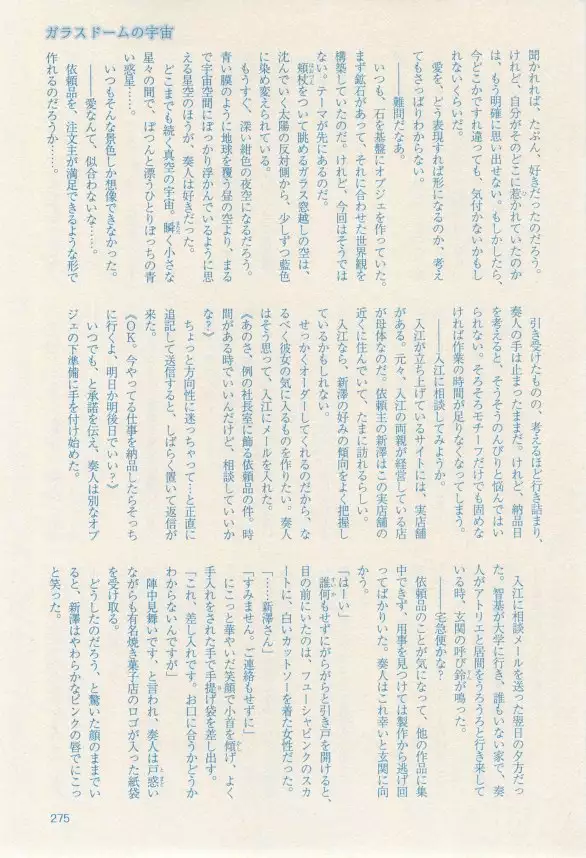 ガラスドームの宇宙
聞かれれば、たぶん、好きだったのだろう。
けれど、自分がそのどこに惹かれていたのか
は、もう明確に思い出せない。もしかしたら、
今どこかですれ違っても、気付かないかもし
れないくらいだ。
愛を、どう表現すれば形になるのか、考え
てもさっぱりわからない。
――難問だなあ。
いつも、石を基盤にオブジェを作っていた。
まず鉱石があって、それに合わせた世界観を
構築していたのだ。けれど、今回はそうでは
ない。テーマが先にあるのだ。
頬杖をついて眺めるガラス窓越しの空は、
沈んでいく太陽の反対側から、少しずつ藍色
に染め変えられている。
もうすぐ、深い紺色の夜空になるだろう。
青い膜のように地球を覆う昼の空より、まる
で宇宙空間にぽっかり浮かんでいるように思
える星空のほうが、奏人は好きだった。
どこまでも続く真空の宇宙。瞬く小さな
星々の間で、ぽつんと漂うひとりぼっちの青
い惑星……。
いつもそんな景色しか想像できなかった。
――愛なんて、似合わないな……。
依頼品を、注文主が満足できるような形で
作れるのだろうか……。
引き受けたものの、考えるほど行き詰まり、
奏人の手は止まったままだ。けれど、納品日
を考えると、そうそうのんびりと悩んではい
られない。そろそろモチーフだけでも固めな
ければ作業の時間が足りなくなってしまう。
――入江に相談してみようか。
入江が立ち上げているサイトには、実店舗
がある。元々、入江の両親が経営している店
が母体なのだ。依頼主の新澤はこの実店舗の
近くに住んでいて、たまに訪れるらしい。
入江なら、新澤の好みの傾向をよく把握し
ているかもしれない。
せっかくオーダーしてくれるのだから、な
るべく彼女の気に入るものを作りたい。奏人
はそう思って、入江にメールを入れた。
《あのさ、例の社長室に飾る依頼品の件。時
間がある時でいいんだけど、相談していいか
な?》
ちょっと方向性に迷っちゃって…と正直に
追記して送信すると、しばらく置いて返信が
来た。
《OK。今やってる仕事を納品したらそっち
に行くよ、明日か明後日でいい?》
いつでも、と承諾を伝え、奏人は別なオブ
ジェの下準備に手を付け始めた。
入江に相談メールを送った翌日の夕方だっ
た。智基が大学に行き、誰もいない家で、奏
人がアトリエと居間をうろうろと行き来して
いる時、玄関の呼び鈴が鳴った。
――宅急便かな?
依頼品のことが気になって、他の作品に集
中できず、用事を見つけては製作から逃げ回
ってばかりいた。奏人はこれ幸いと玄関に向
かう。
「はーい」
誰何もせずにがらがらと引き戸を開けると、
目の前にいたのは、フューシャピンクのスカ
ートに、白いカットソーを着た女性だった。
「……新澤さん」
「すみません。ご連絡もせずに」
にこっと華やいだ笑顔で小首を傾げ、よく
手入れをされた手で手提げ袋を差し出す。
「これ、差し入れです。お口に合うかどうか
わからないんですが」
陣中見舞いです、と言われ、奏人は戸惑い
ながらも有名焼き菓子店のロゴが入った紙袋
を受け取る。
どうしたのだろう、と驚いた顔のままでい
ると、新澤はやわらかなピンクの唇でにこっ
と笑った。
275